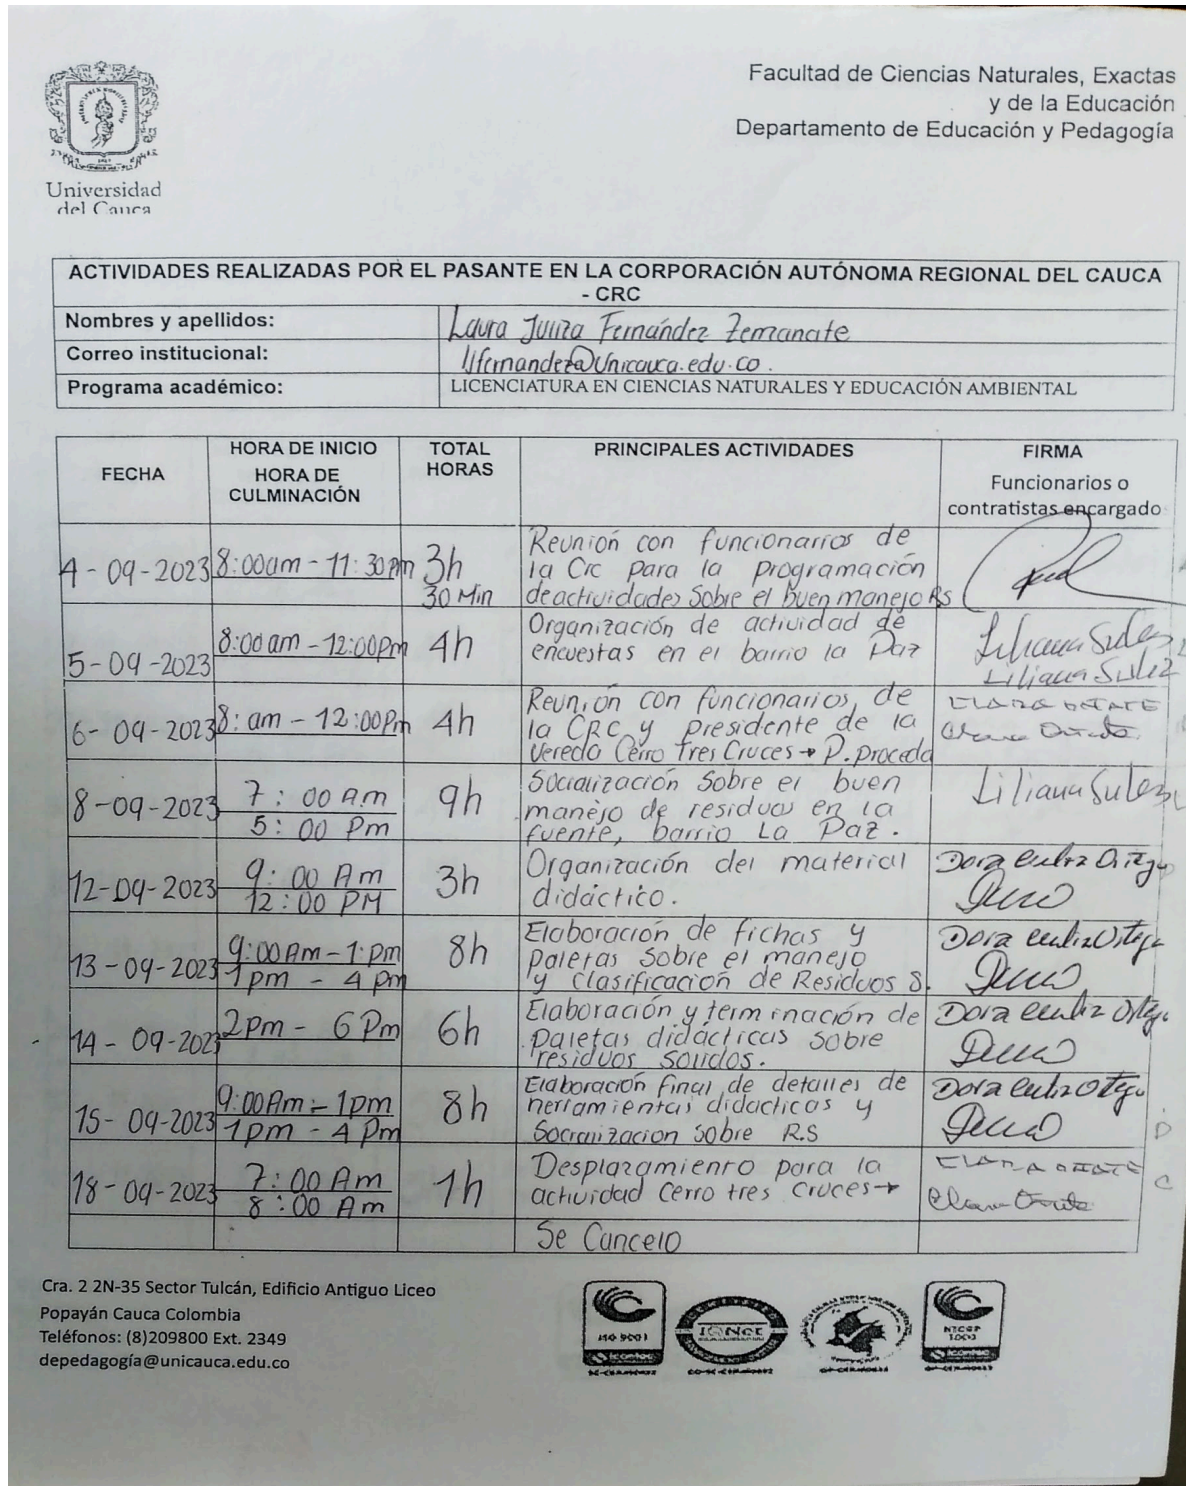 Universidad
del Cauca
Facultad de Ciencias Naturales, Exactas
y de la Educación
Departamento de Educación y Pedagogía
ACTIVIDADES REALIZADAS POR EL PASANTE EN LA CORPORACIÓN AUTÓNOMA REGIONAL DEL CAUCA
- CRC
Nombres y apellidos: Laura Fernández Zemanate
Correo institucional: llfernandez@unicauca.edu.co.
Programa académico: LICENCIATURA EN CIENCIAS NATURALES Y EDUCACIÓN AMBIENTAL
FECHA
HORA DE INICIO
HORA DE
CULMINACIÓN
TOTAL
HORAS
PRINCIPALES ACTIVIDADES
FIRMA
Funcionarios o
contratistas encargado
4-09-2023 8:00am - 11:30pm 3h
30 Min
Reunión con funcionarios de
la Crc para la programación
de actividades Sobre el buen manejo Rs
5-09-2023 8:00am - 12:00pm 4h
Organización de actividad de
encuestas en el barrio la Paz
Liliana Sulez
Liliana Sulez
6-09-2023 8:am - 12:00pm 4h
Reunión con funcionarios de
la CRC y presidente de la
Vereda Cerro Tres Cruces → P.proceda
CLARA OÑATE
Clara Oñate
8-09-2023 7:00 Am
5:00 Pm
9h
Socialización Sobre el buen
manejo de residuos en la
fuente, barrio La Paz.
Liliana Sulez
12-09-2023 9:00 Am
12:00 PM
3h
Organización del material
didáctico.
Dora Ortega
13-09-2023 9:00Am - 1:pm
1pm - 4pm
8h
Elaboración de fichas y
paletas Sobre el manejo
y Clasificación de Residuos S.
Dora Ortega
14-09-2023 2pm - 6Pm 6h
Elaboración y terminación de
paletas didácticas Sobre
residuos solidos.
Dora Ortega
15-09-2023 9:00Am - 1pm
1pm - 4Pm
8h
Elaboración final de detalles de
herramientas didacticas y
Socialización Sobre R.S
Dora Ortega
18-09-2023 7:00 Am
8:00 Am
1h
Desplazamiento para la
actividad Cerro tres Cruces→
CLARA OÑATE
Clara Oñate
Se Cancelo
Cra. 2 2N-35 Sector Tulcán, Edificio Antiguo Liceo
Popayán Cauca Colombia
Teléfonos: (8)209800 Ext. 2349
depedagogía@unicauca.edu.co
ISO 9001
icontec
IQNet
NTCGP
1000
icontec